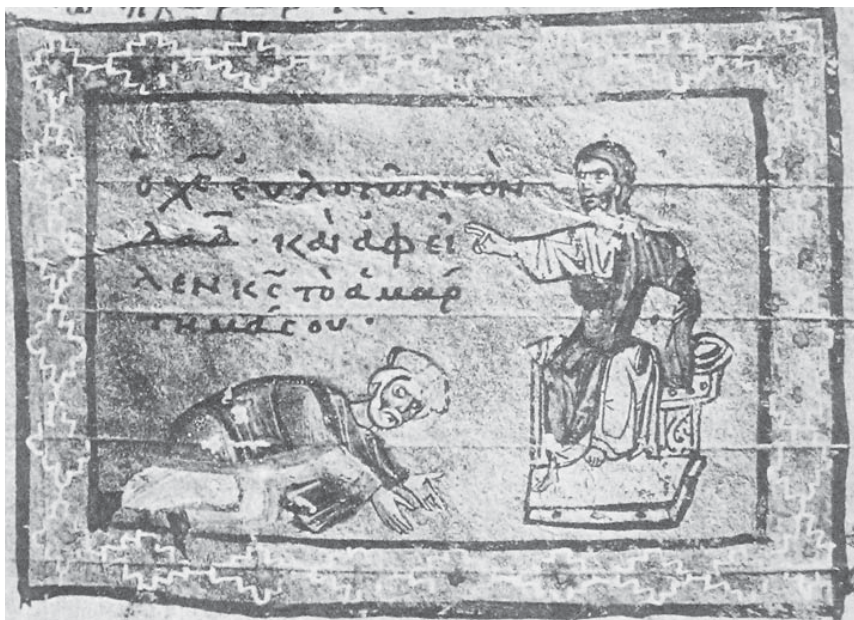 ὁ χ̅ε̅ ἐυλογῶν τὸν
δᾱδ̄· καὶ ἀφεῖ
λεν κ̅ς̅ τὸ ἁμάρ
τημά σου·